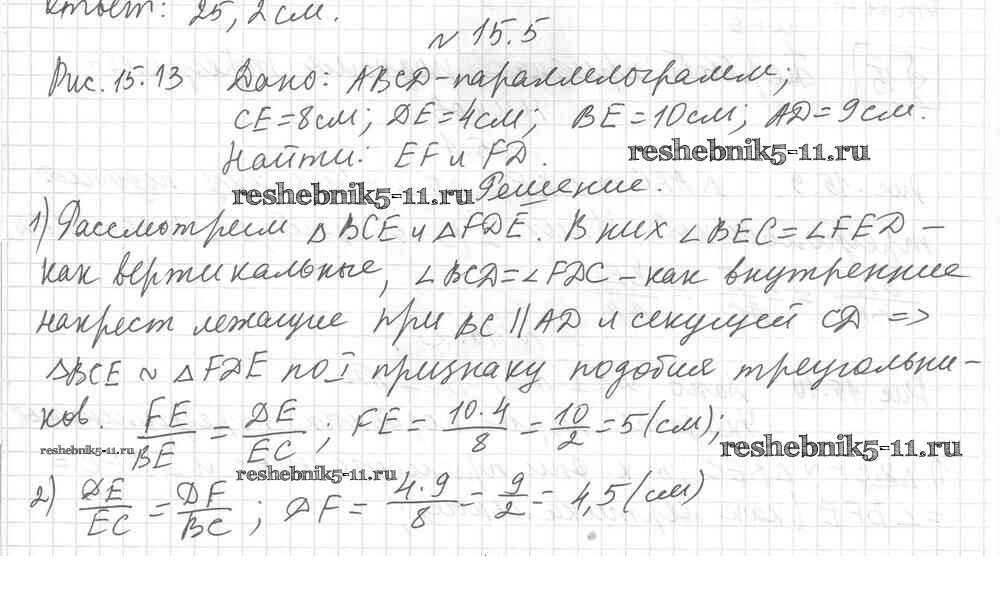 Ответ: 25,2 см.
№ 15.5
Рис. 15.13 Дано: ABCD - параллелограмм;
CE = 8 см; DE = 4 см; BE = 10 см; AD = 9 см.
Найти: EF и FD.
reshebnik5-11.ru
reshebnik5-11.ru
Решение.
1) Рассмотрим △BCE и △FDE. В них ∠BEC = ∠FED –
как вертикальные, ∠BCD = ∠FDC – как внутренние
накрест лежащие при BC || AD и секущей CD =>
△BCE ~ △FDE по I признаку подобия треугольни-
ков. FE/BE = DE/EC; FE = 10·4/8 = 10/2 = 5 (см);
reshebnik5-11.ru
reshebnik5-11.ru
reshebnik5-11.ru
2) DE/EC = DF/BC; DF = 4·9/8 = 9/2 = 4,5 (см)